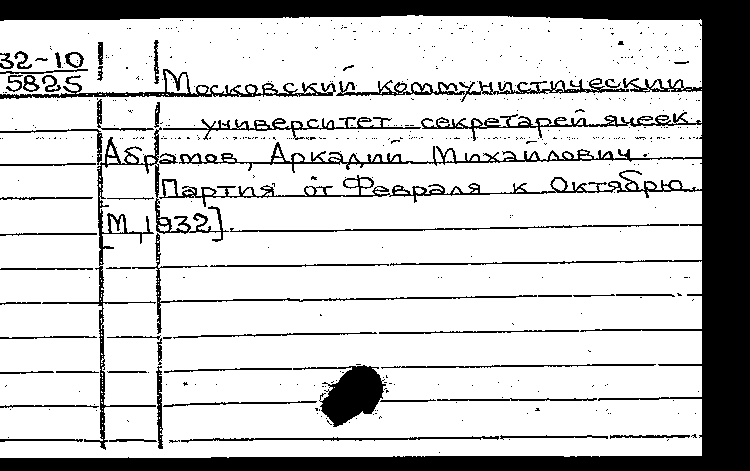 32-10
5825
Московский коммунистический
университет секретарей ячеек.
Абрамов, Аркадий Михайлович.
Партия от Февраля к Октябрю.
[М, 1932].